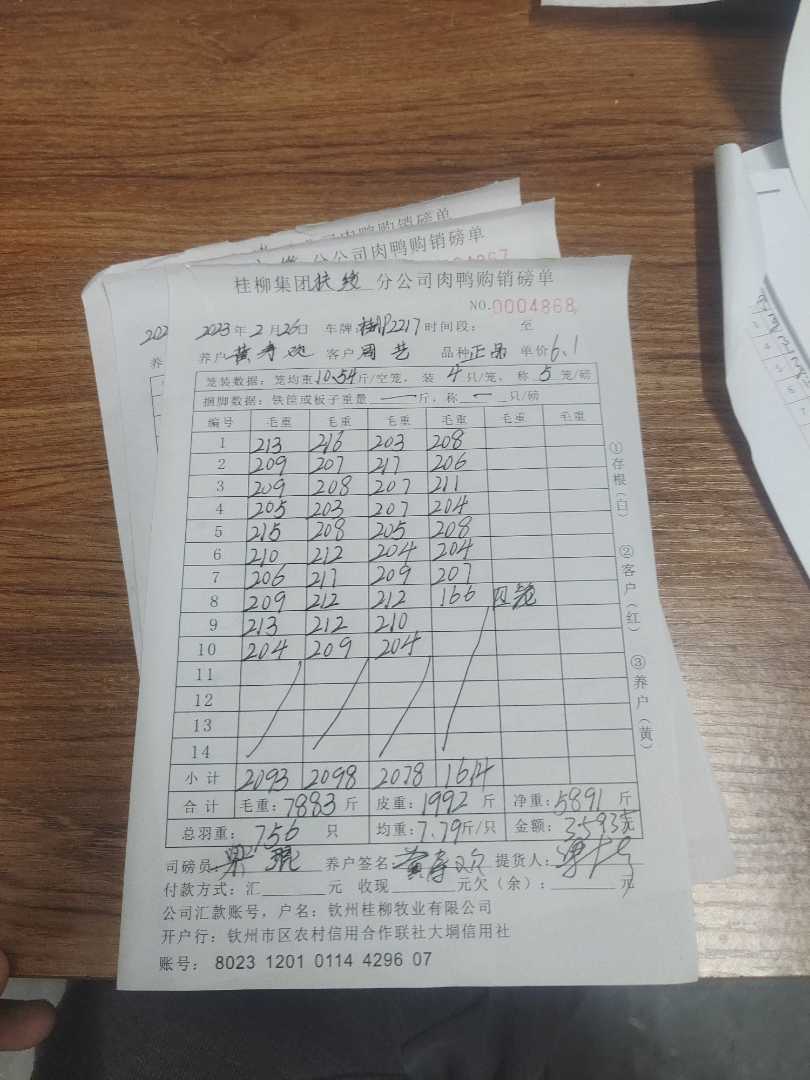 分公司肉鸭购销磅单
桂柳集团扶绥分公司肉鸭购销磅单
NO.0004868
2023年2月26日 车牌:桂P2217 时间段: 至
养户 黄寿欢 客户 周艺 品种 正品 单价 6.1
笼装数据:笼均重10.54斤/空笼,装4只/笼,称5笼/磅
捆脚数据:铁筐或板子重量 — 斤,称 — 只/磅
编号 毛重 毛重 毛重 毛重 毛重 毛重
1 213 216 203 208
2 209 207 217 206
3 209 208 207 211
4 205 203 207 204
5 215 208 205 208
6 210 212 204 204
7 206 217 209 207
8 209 212 212 166 四笼
9 213 212 210
10 204 209 204
11
12
13
14
小计 2093 2098 2078 1614
合计 毛重:7883斤 皮重:1992斤 净重:5891斤
总羽重:756只 均重:7.79斤/只 金额:35935元
司磅员: 养户签名:黄寿欢 提货人:
付款方式:汇 元 收现 元欠(余): 元
公司汇款账号,户名:钦州桂柳牧业有限公司
开户行:钦州市区农村信用合作联社大垌信用社
账号: 8023 1201 0114 4296 07
①存根(白)
②客户(红)
③养户(黄)